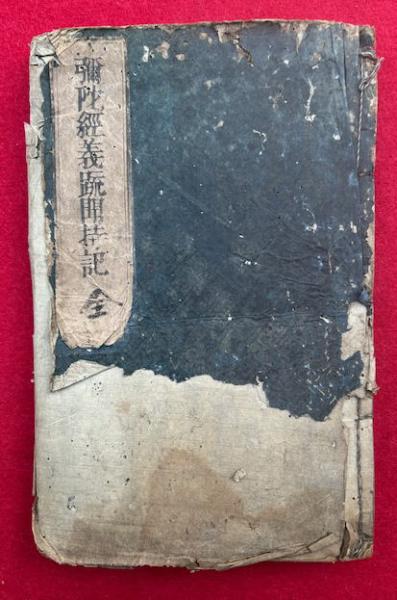 彌陀經義疏聞持記 全